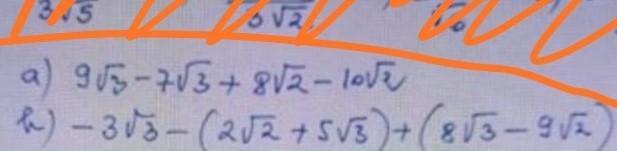 3√5 √2
a) 9√3 - 7√3 + 8√2 - 10√2
b) - 3√3 - (2√2 + 5√3) + (8√3 - 9√2)